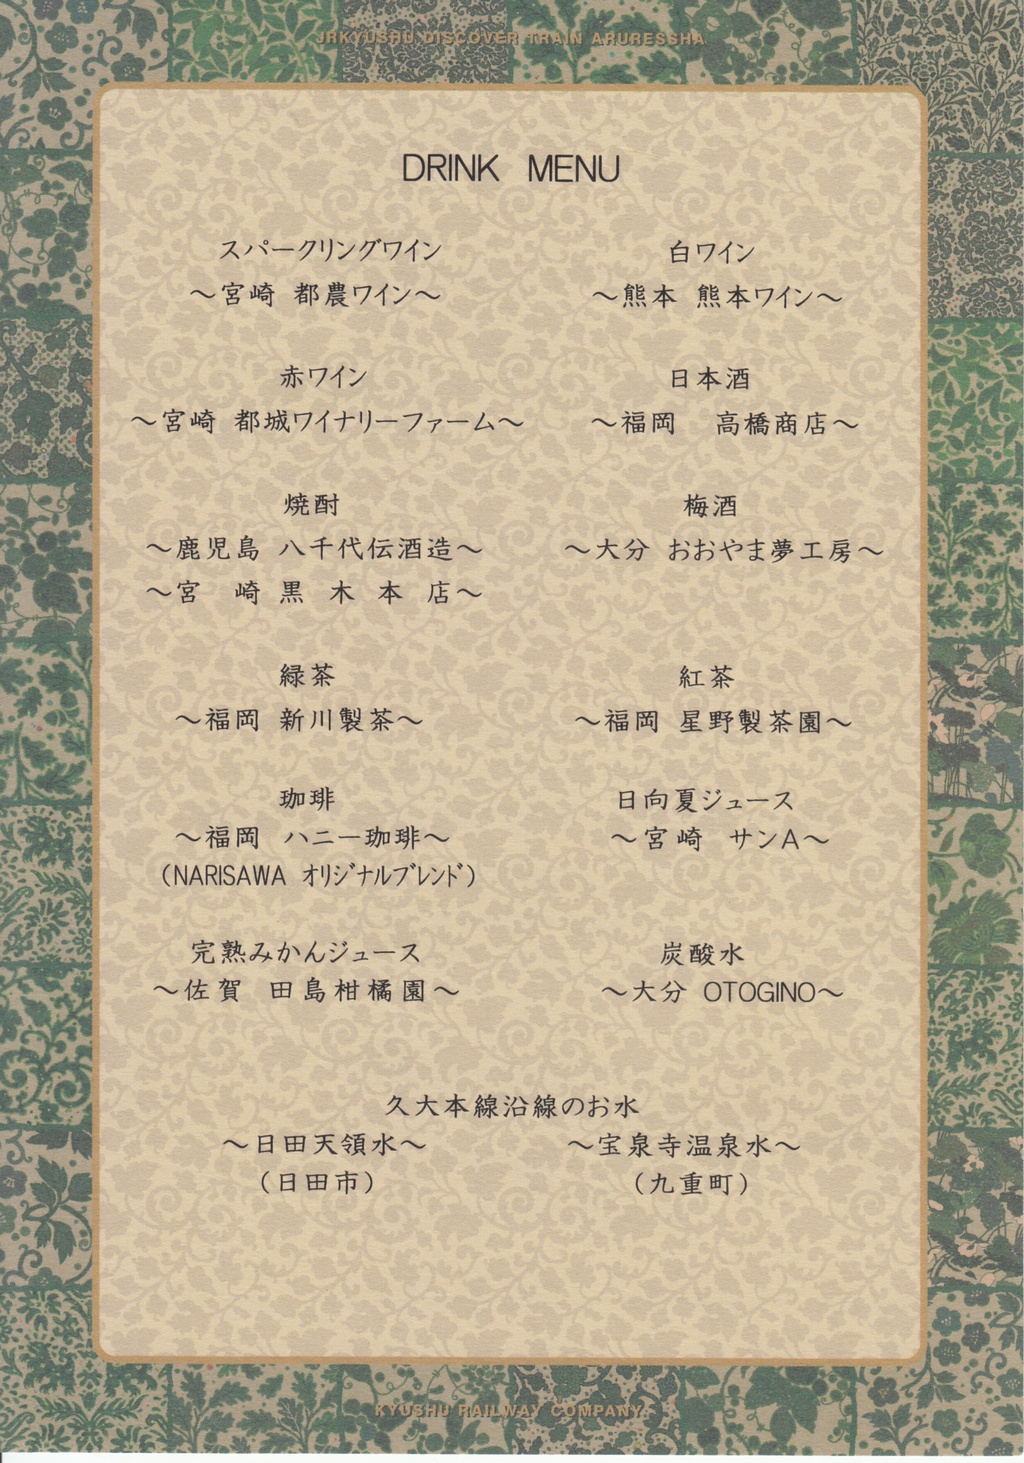 JRKYUSHU DISCOVER TRAIN ARURESSHA
DRINK MENU
スパークリングワイン
～宮崎 都農ワイン～
白ワイン
～熊本 熊本ワイン～
赤ワイン
～宮崎 都城ワイナリーファーム～
日本酒
～福岡 高橋商店～
焼酎
～鹿児島 八千代伝酒造～
～宮 崎 黒 木 本 店～
梅酒
～大分 おおやま夢工房～
緑茶
～福岡 新川製茶～
紅茶
～福岡 星野製茶園～
珈琲
～福岡 ハニー珈琲～
(NARISAWA オリジナルブレンド)
日向夏ジュース
～宮崎 サンA～
完熟みかんジュース
～佐賀 田島柑橘園～
炭酸水
～大分 OTOGINO～
久大本線沿線のお水
～日田天領水～
(日田市)
～宝泉寺温泉水～
(九重町)
KYUSHU RAILWAY COMPANY